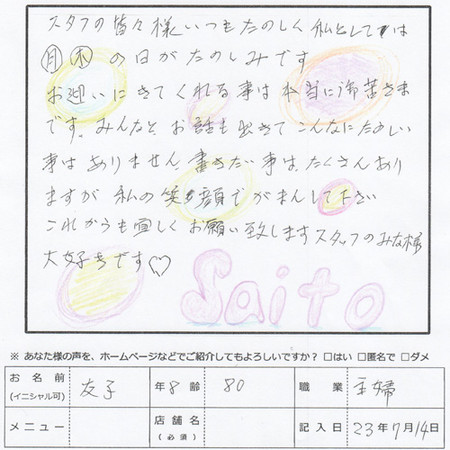 スタフの皆々様いつもたのしく私としては
月木の日がたのしみです
お迎いにきてくれる事は本当に御苦さま
です。みんなとお話も出きてこんなにたのしい
事はありません。書きたい事は、たくさんあり
ますが私の笑顔でがまんして下さい
これからも宜しくお願い致しますスタッフのみな様
大好きです♡
Saito
※ あなた様の声を、ホームページなどでご紹介してもよろしいですか？ □はい □匿名で □ダメ
お名前 (イニシャル可) 友子 年8齢 80 職業 主婦
メニュー 店舗名 (必須) 記入日 23年7月14日